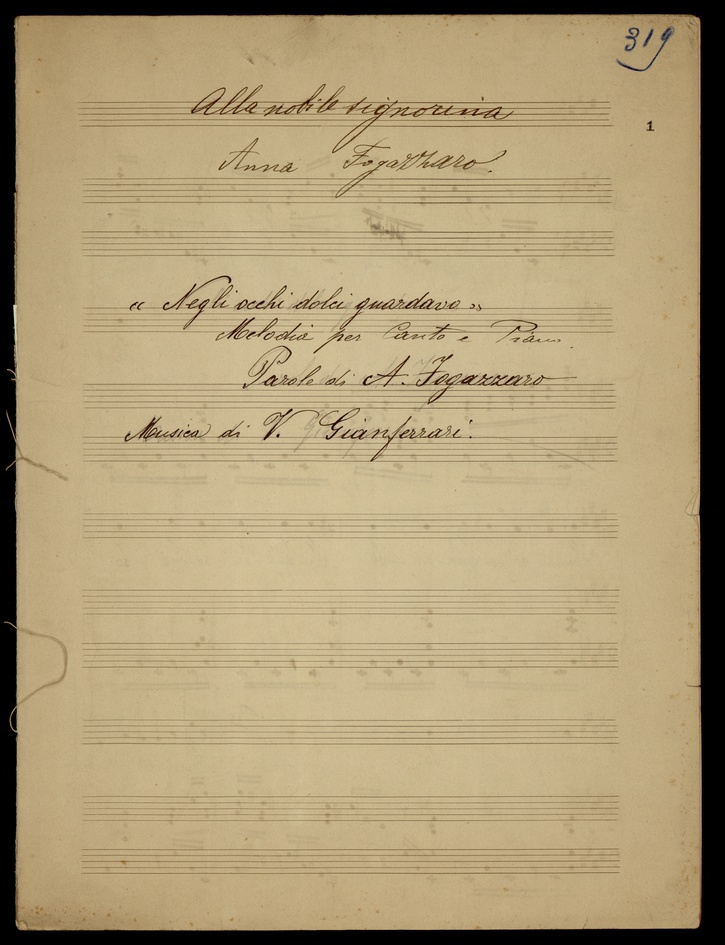 319
1
Alla nobile signorina
Anna Fogazzaro.
« Negli occhi dolci guardavo »
Melodia per Canto e Piano.
Parole di A. Fogazzaro
Musica di V. Gianferrari.